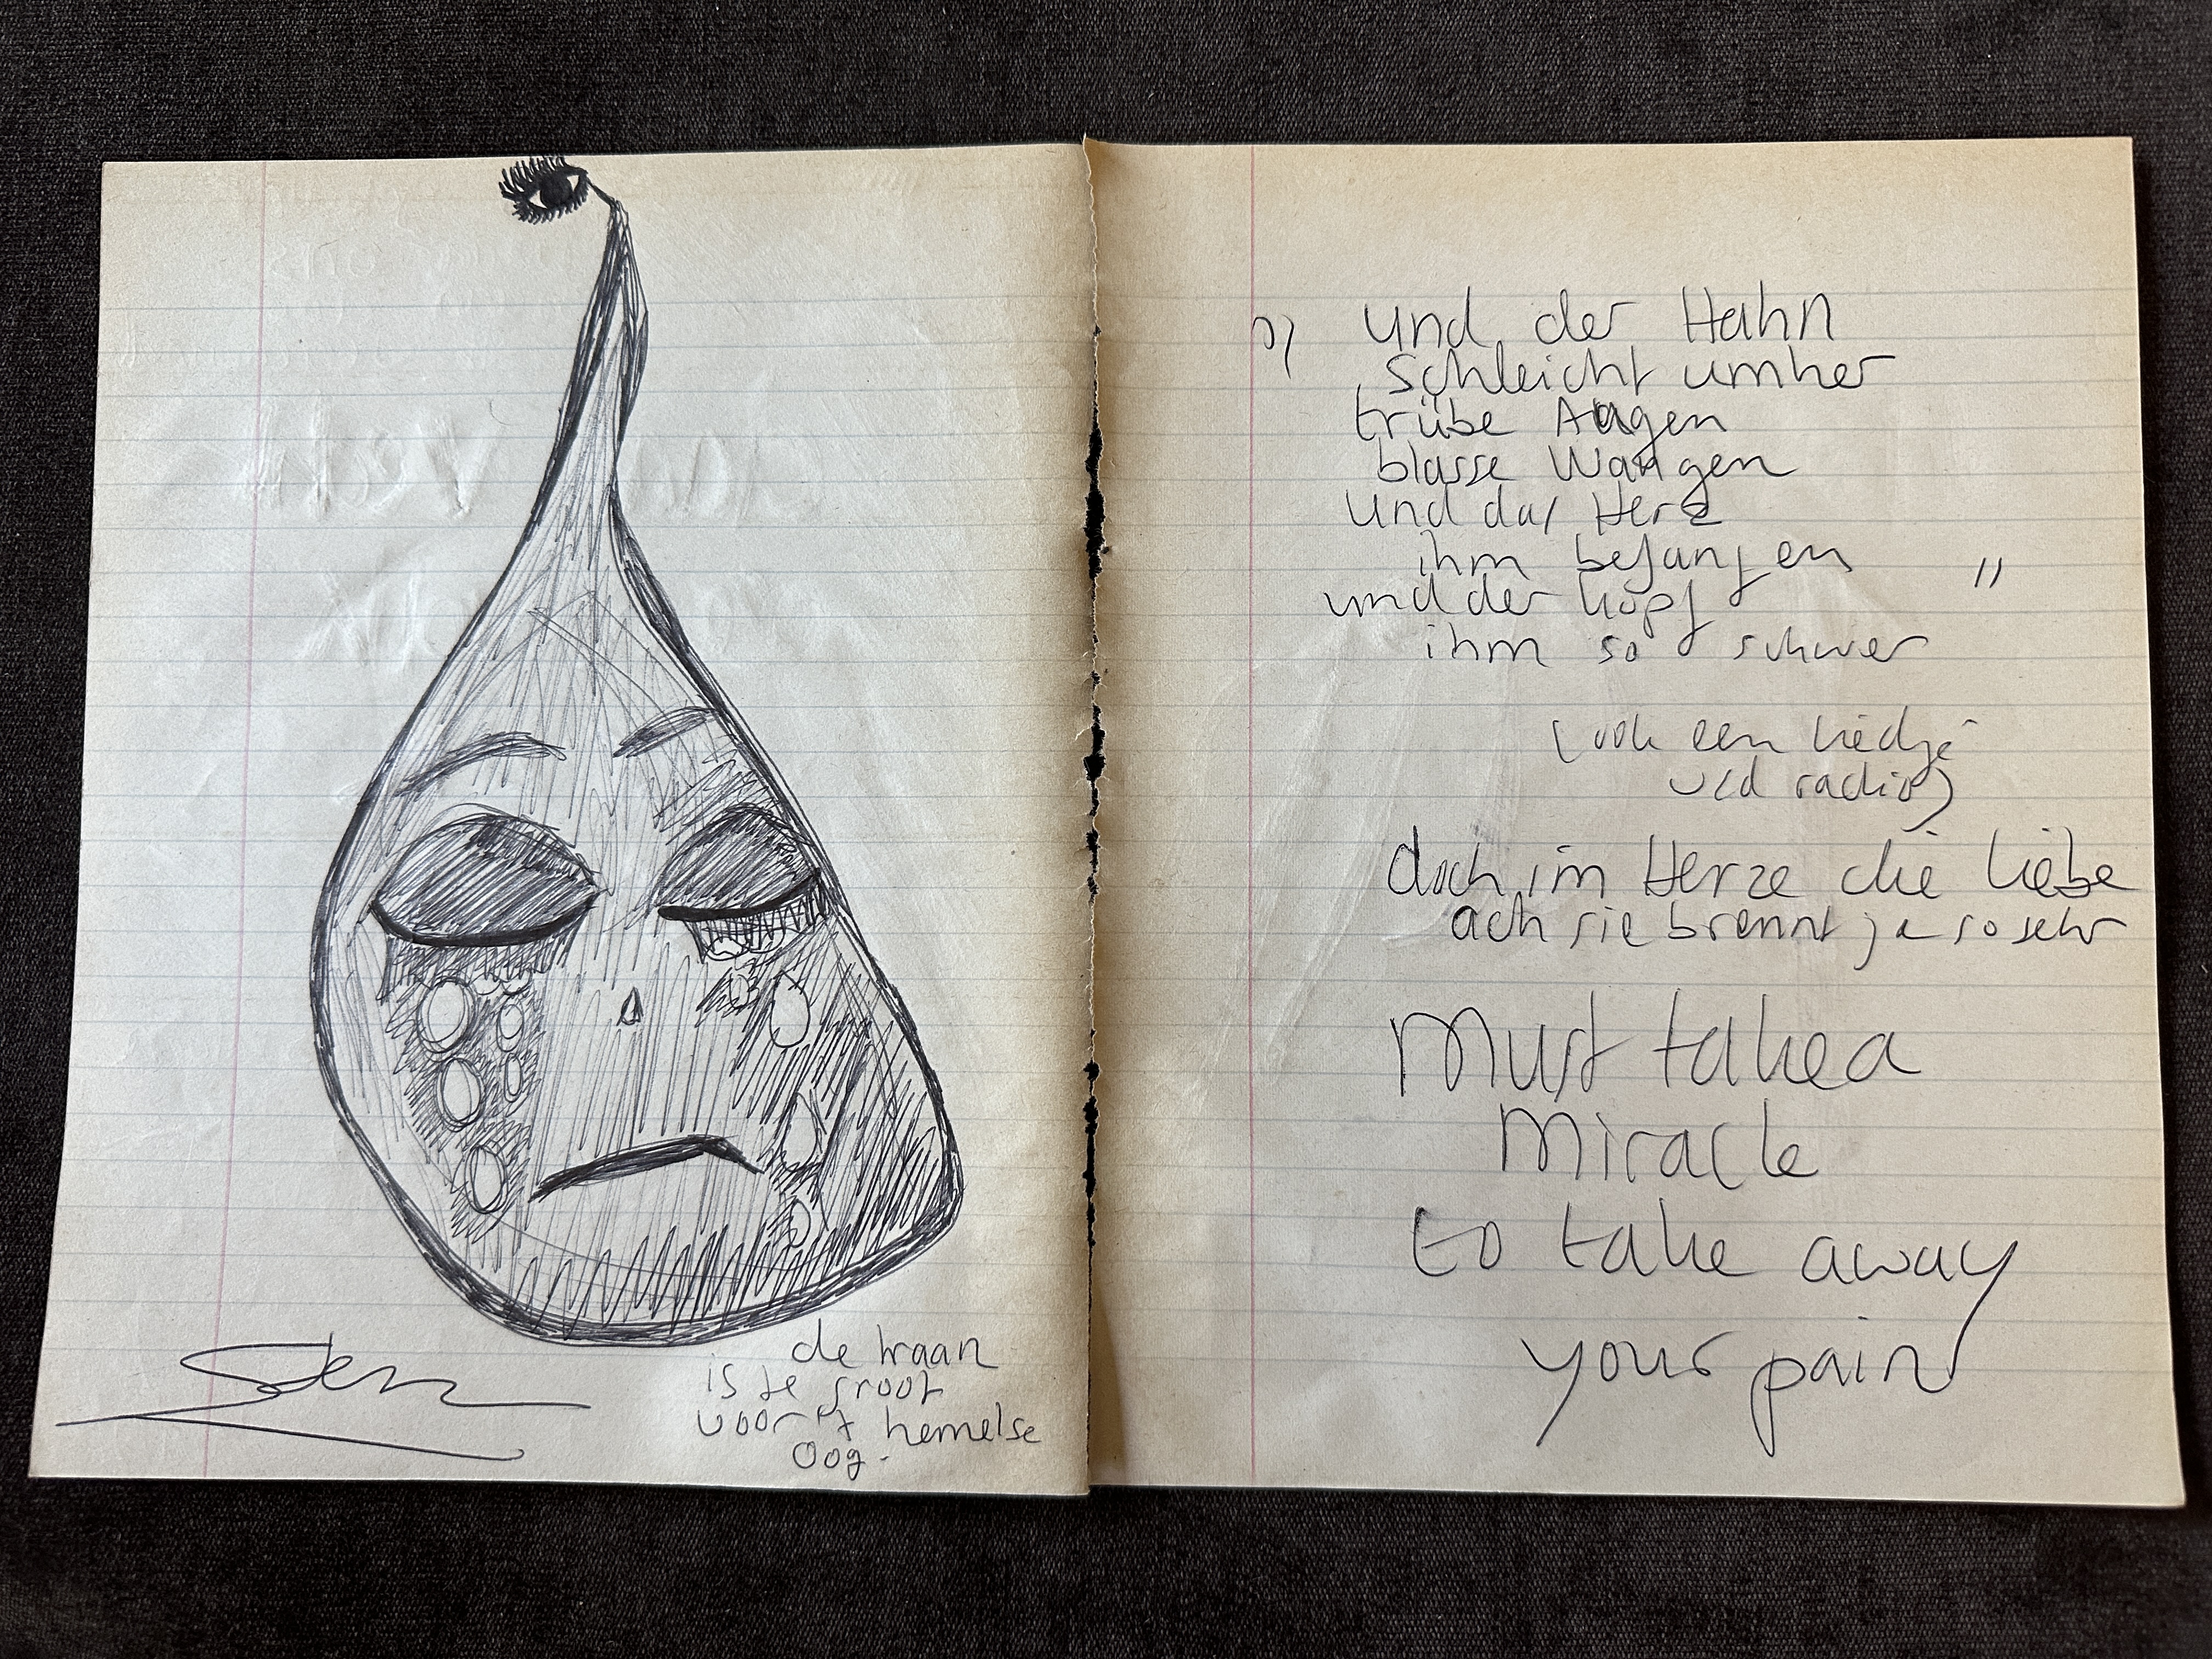 Sen
de traan
is te groot
voor 't hemelse
oog.
und der Hahn
schleicht umher
trübe Augen
blasse Wangen
und das Herz
ihm befangen "
und der Kopf
ihm so schwer
(ook een liedje
v/d radio)
doch im Herze die liebe
ach sie brennt ja so sehr
Must take a
Miracle
to take away
your pain